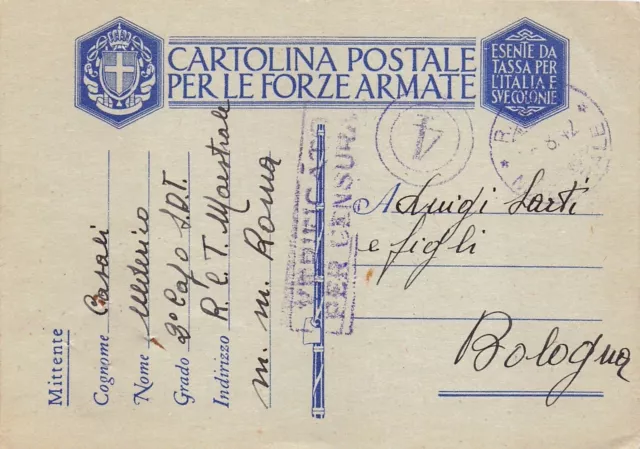 CARTOLINA POSTALE
PER LE FORZE ARMATE
ESENTE DA
TASSA PER
L'ITALIA E
SUE COLONIE
VERIFICATO
PER CENSURA
4
A Luigi Sarti
e figli
Bologna
Mittente
Cognome Casali
Nome
Grado 2° Capo S.D.T.
Indirizzo R. C. T. Maestrale
m. m. Roma